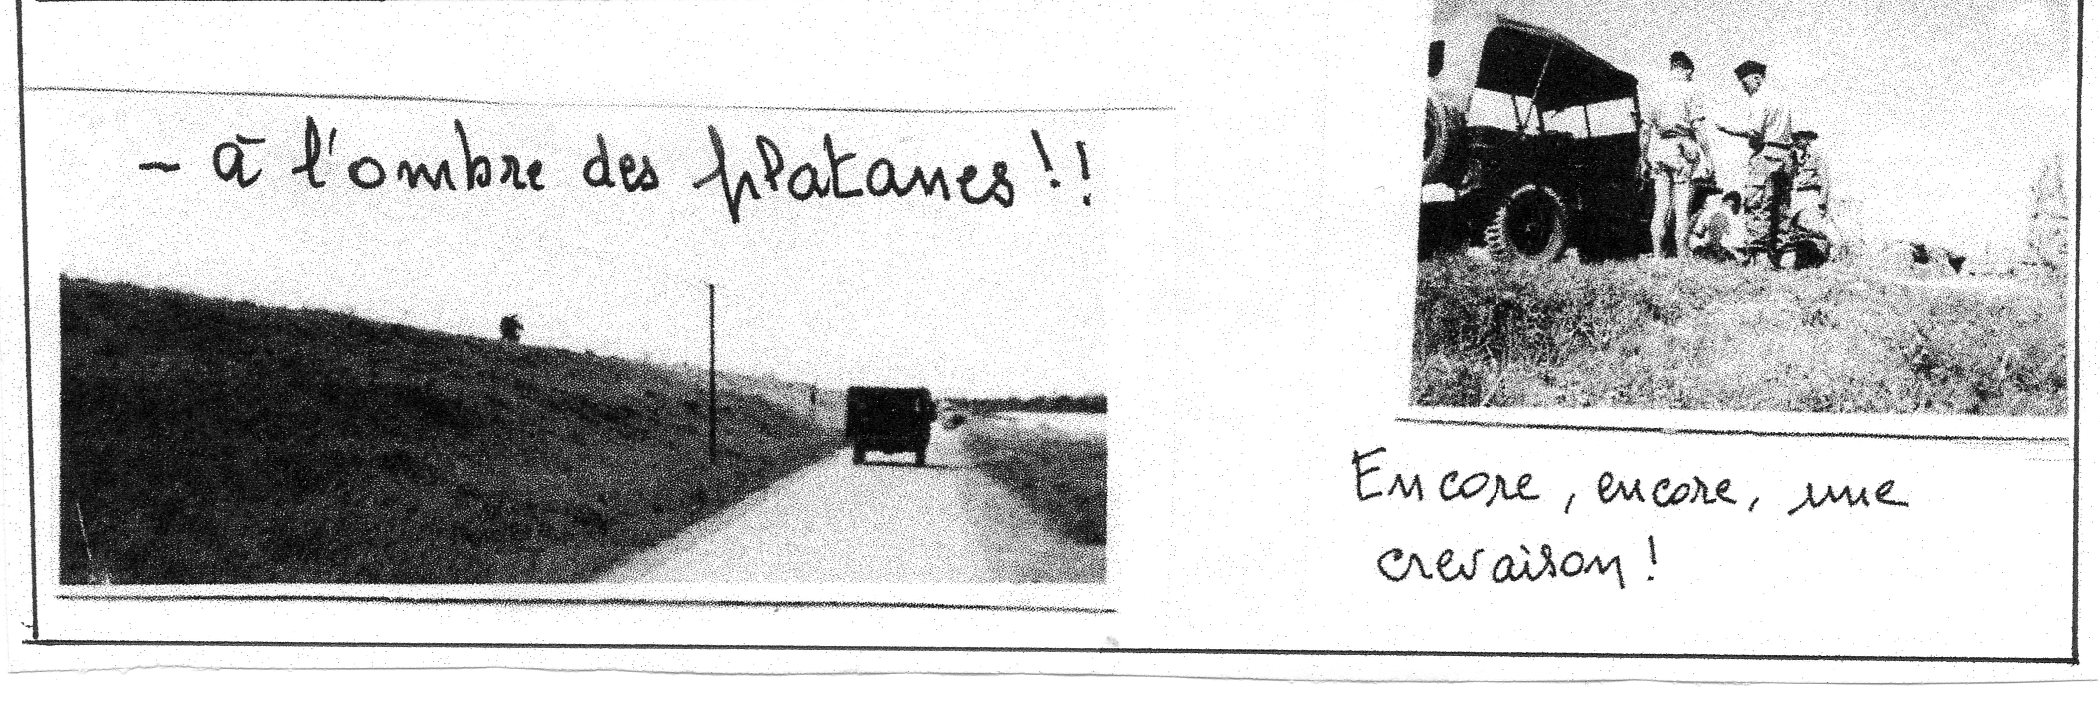 - à l'ombre des platanes !!
Encore, encore, une
crevaison !